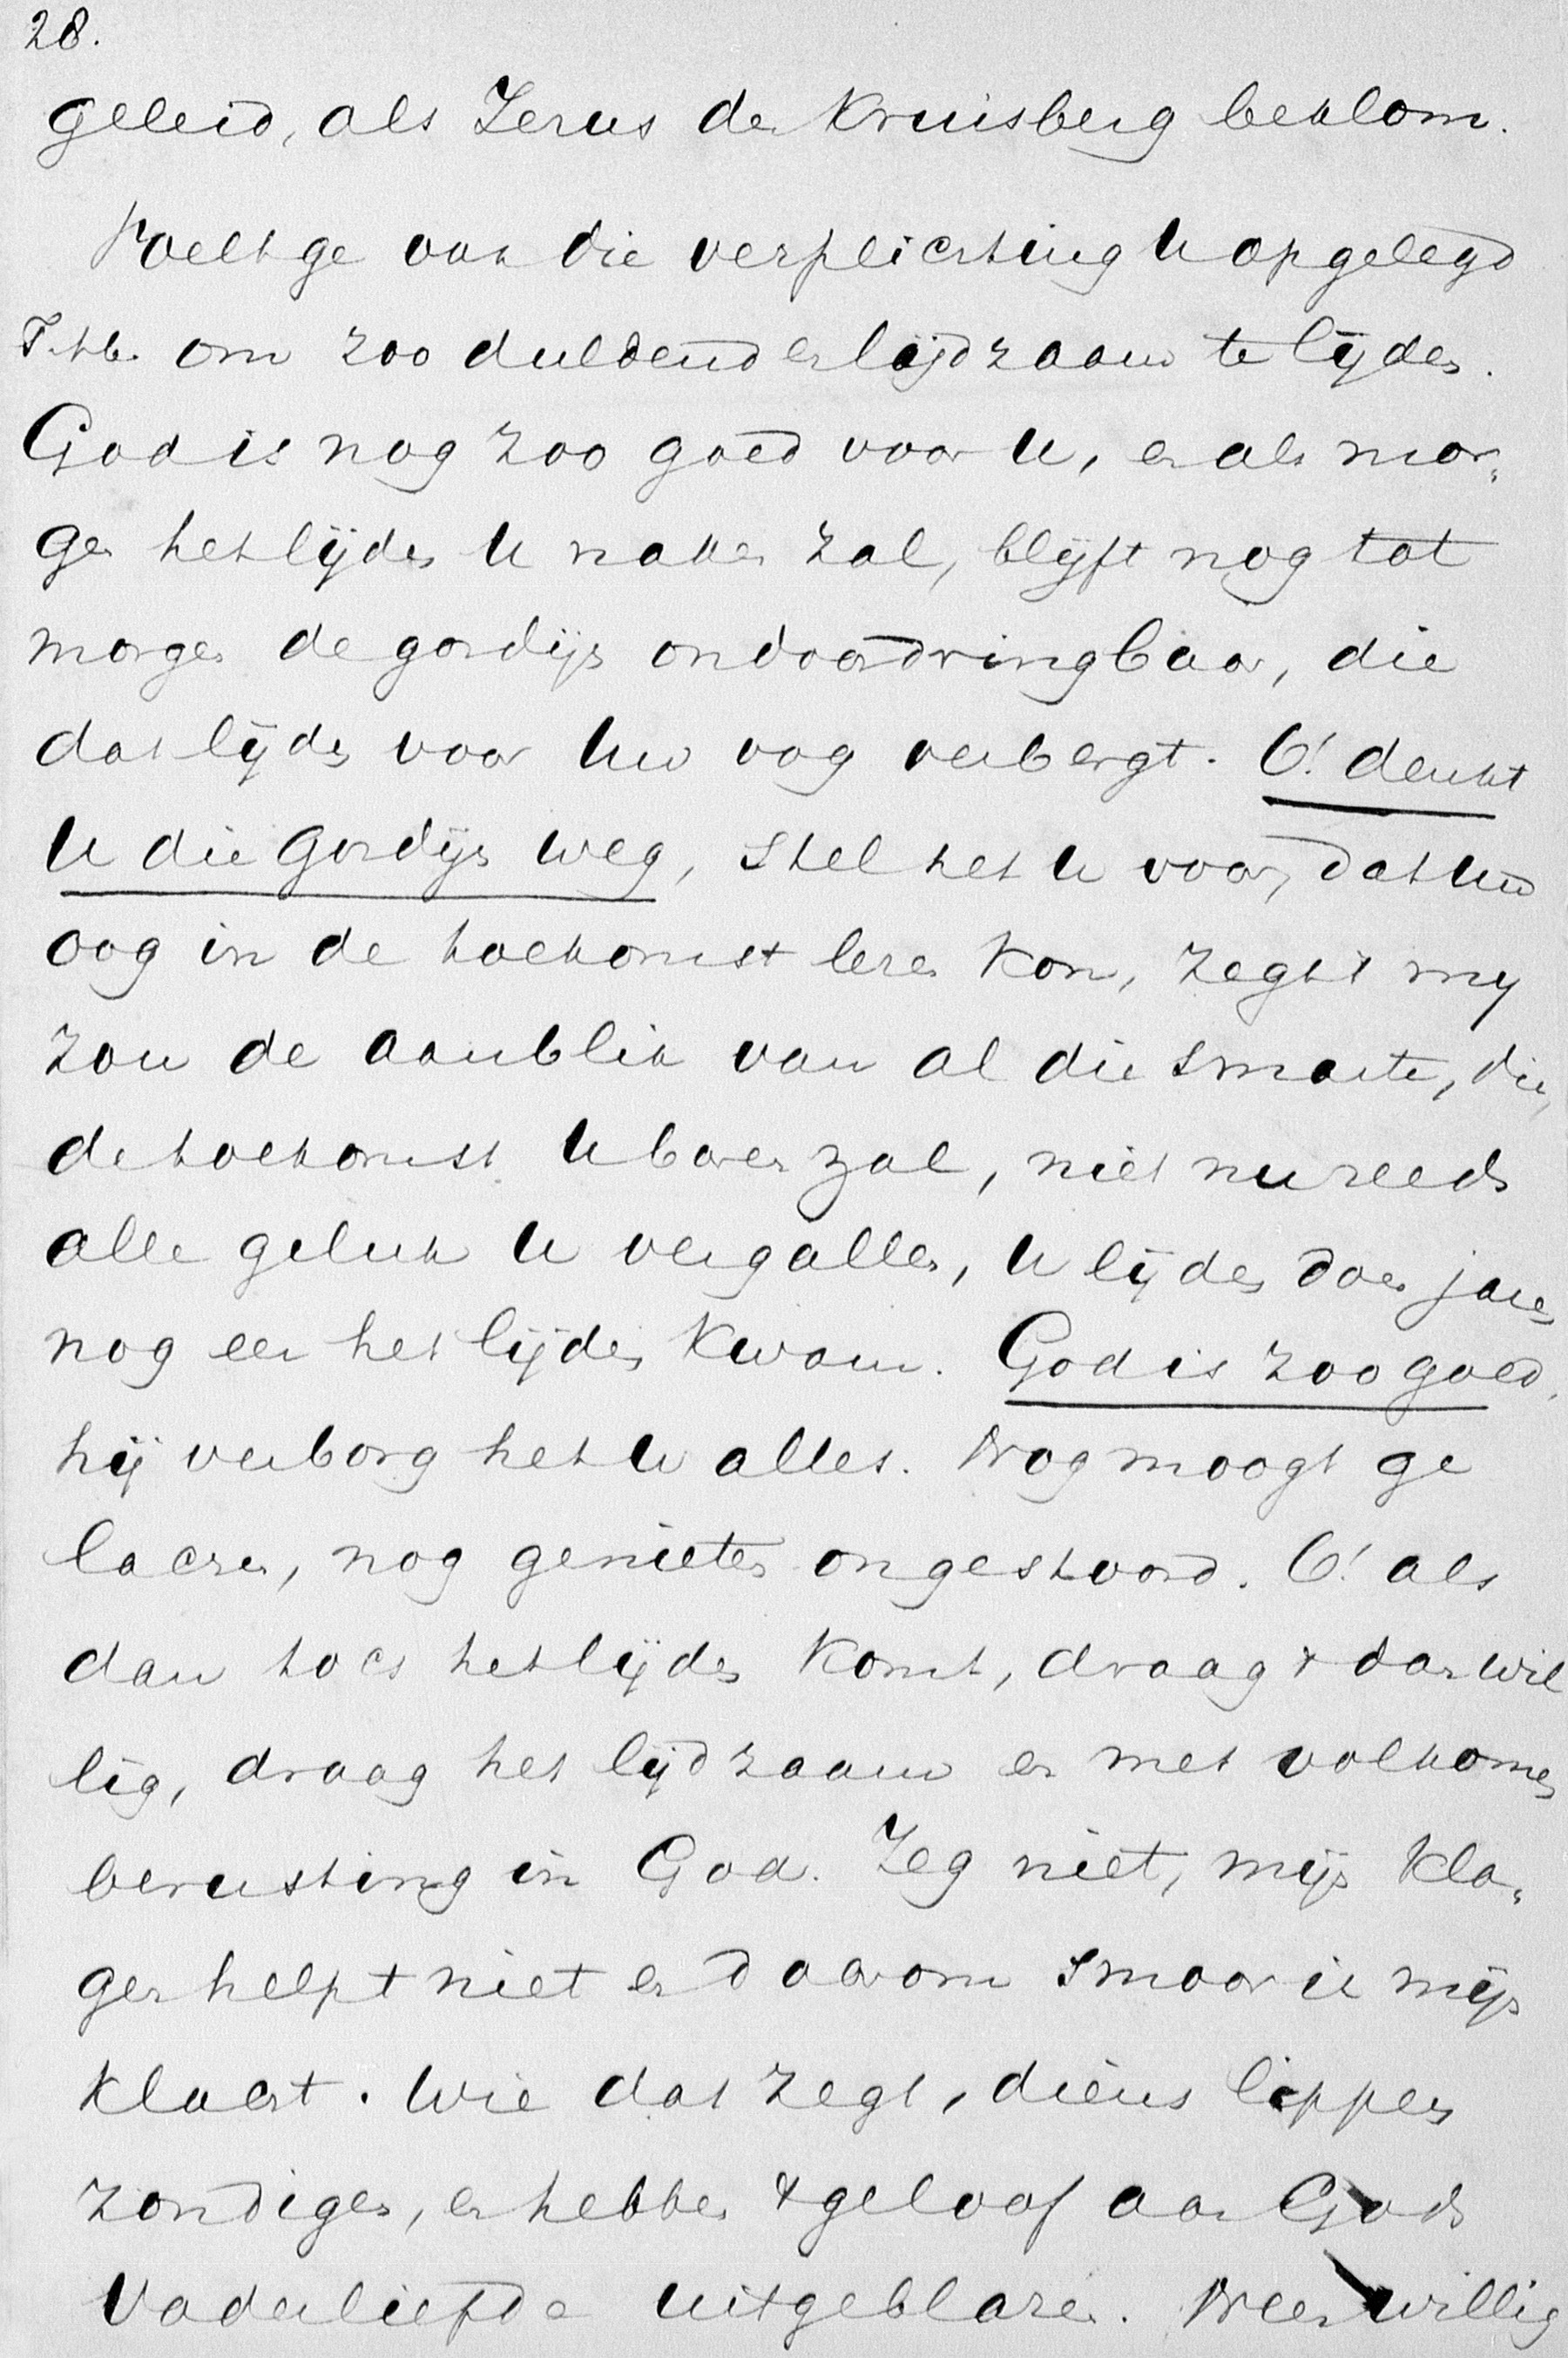 28.
geleid, als Jezus den Kruisberg beklom.
Voelt ge ook die verplichting U opgelegd
T. h. om zoo duldend en lijdzaam te lijden.
God is nog zoo goed voor U, en als mor-
gen het lijden U naken zal, blijft nog tot
morgen de gordijn ondoordringbaar, die
dat lijden voor Uw oog verbergt. O! denkt
U die Gordijn weg, stel het U voor, dat Uw
oog in de toekomst lezen kon, zegt 't mij
zou de aanblik van al die smarte, die
de toekomst U baren zal, niet nu reeds
alle geluk U vergallen, U lijden doen jaren
nog eer het lijden kwam. God is zoo goed,
hij verborg het U alles. Nog moogt ge
lachen, nog genieten ongestoord. O! als
dan toch het lijden komt, draag 't dan wil
lig, draag het lijdzaam en met volkomen
berusting in God. Zeg niet, mijn kla-
gen helpt niet en daarom smoor ik mijn
klacht. Wie dat zegt, diens lippen
zondigen, en hebben 't geloof aan Gods
Vaderliefde uitgeblazen. Neen willig